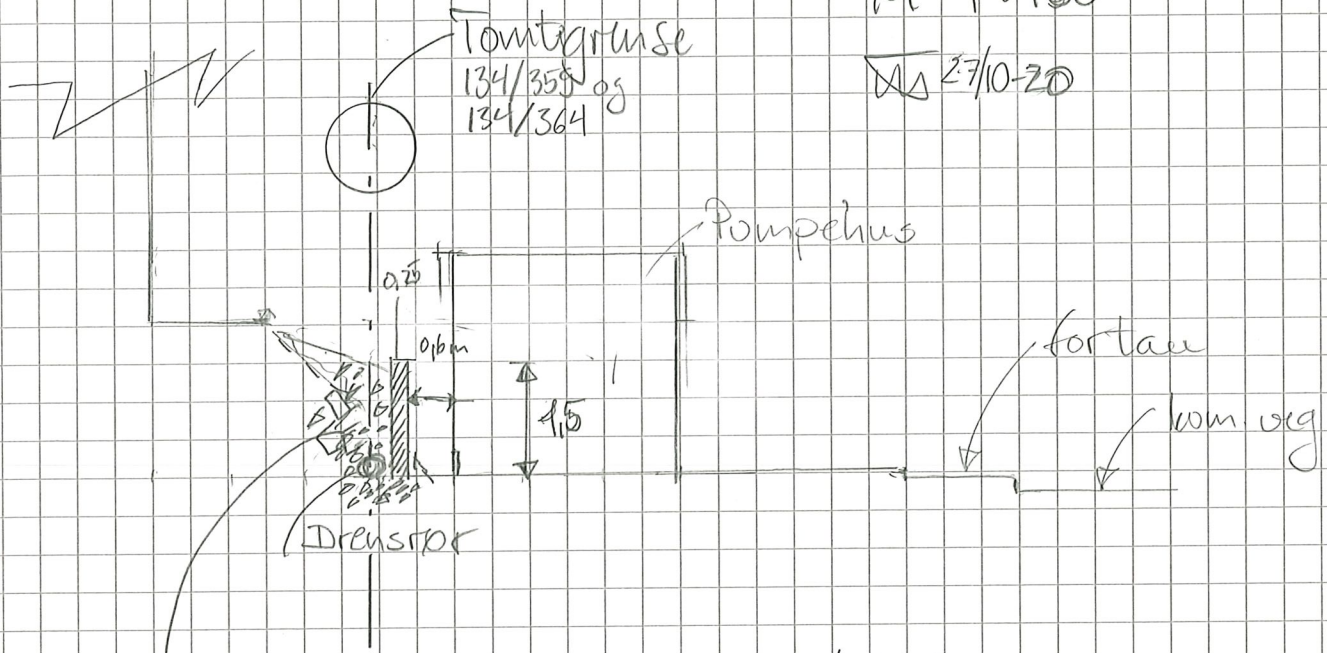 Tomtegrense
134/355 og
134/364
27/10-20
Pumpehus
0,25
0,6m
1,5
fortau
kom. veg
Drensrør